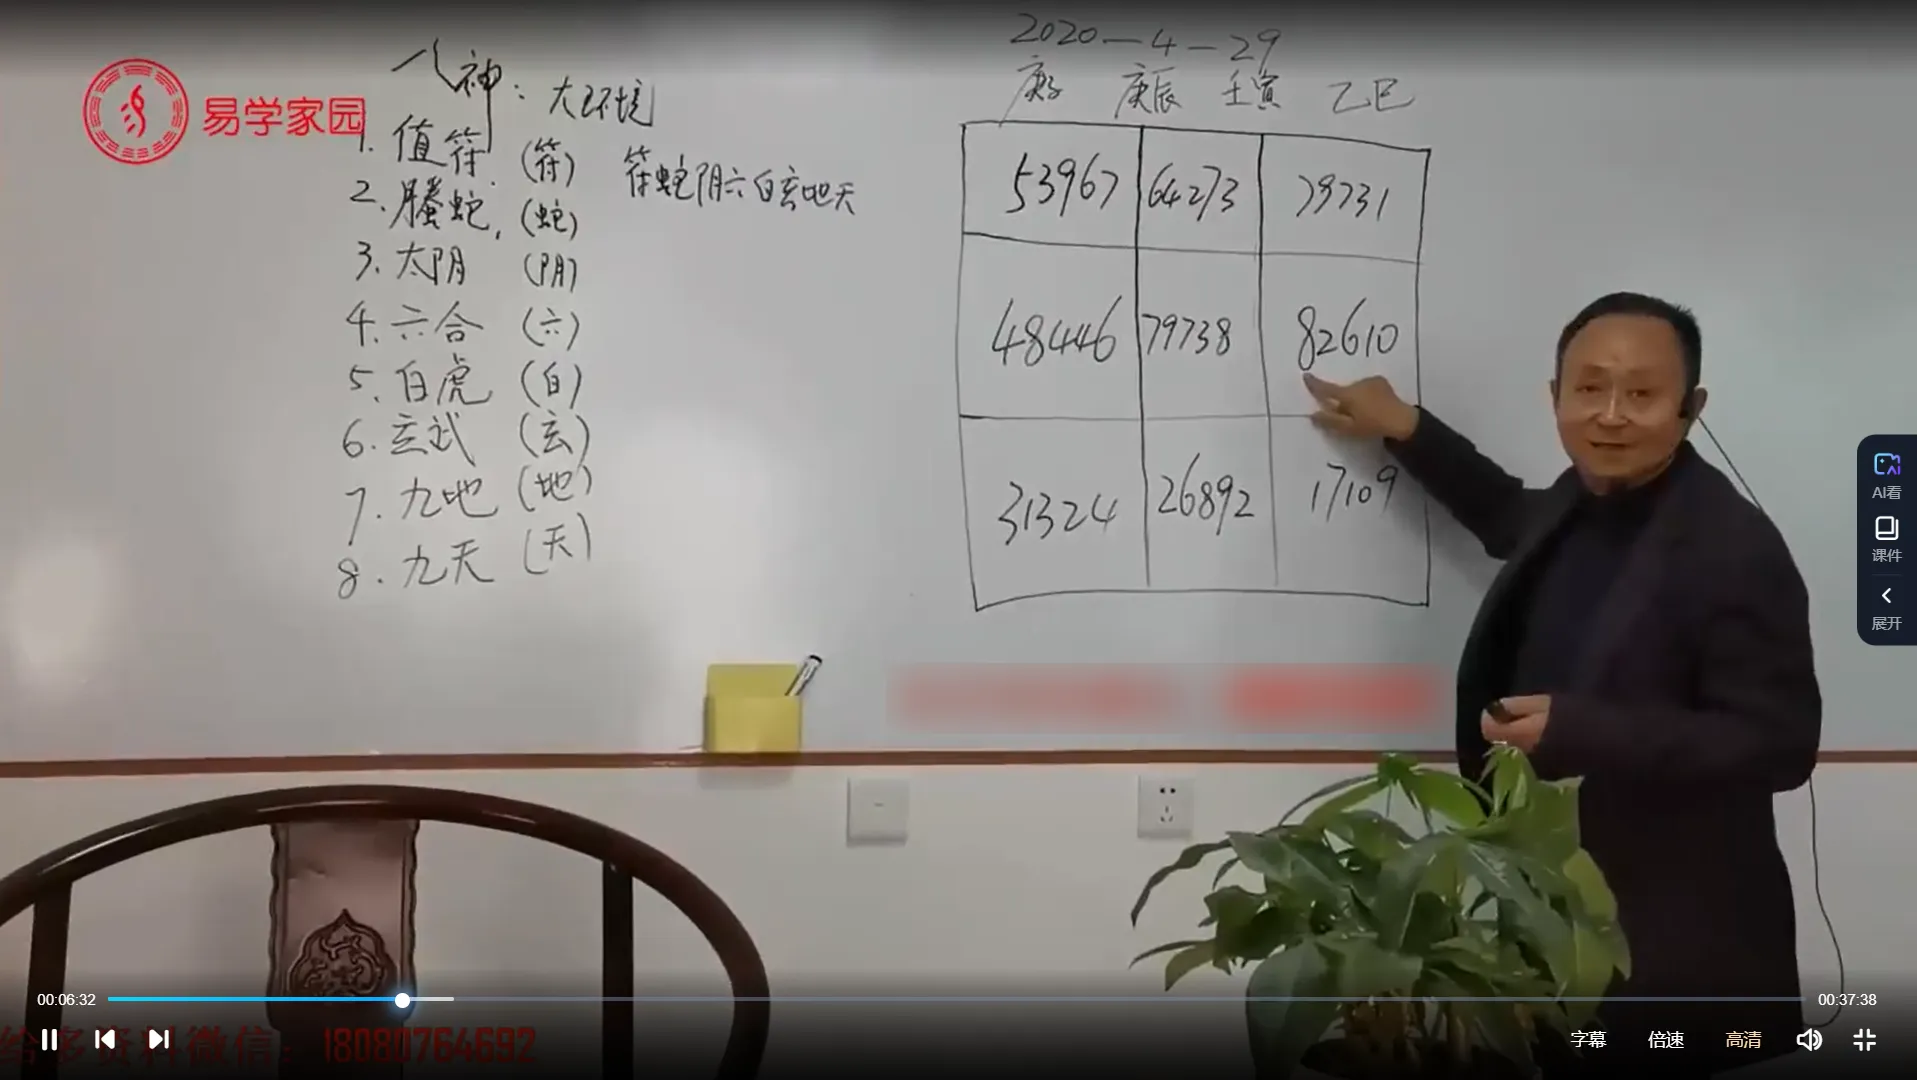 易学家园
八神：大环境
1. 值符 (符) 符蛇阴六白玄地天
2. 螣蛇, (蛇)
3. 太阴 (阴)
4. 六合 (六)
5. 白虎 (白)
6. 玄武 (玄)
7. 九地 (地)
8. 九天 (天)
2020-4-29
庚子 庚辰 壬寅 乙巳
53967 64273 79731
48446 79738 82610
31324 26892 17109
AI看
课件
展开
00:06:32
00:37:38
给多资料微信：18080764692
字幕 倍速 高清